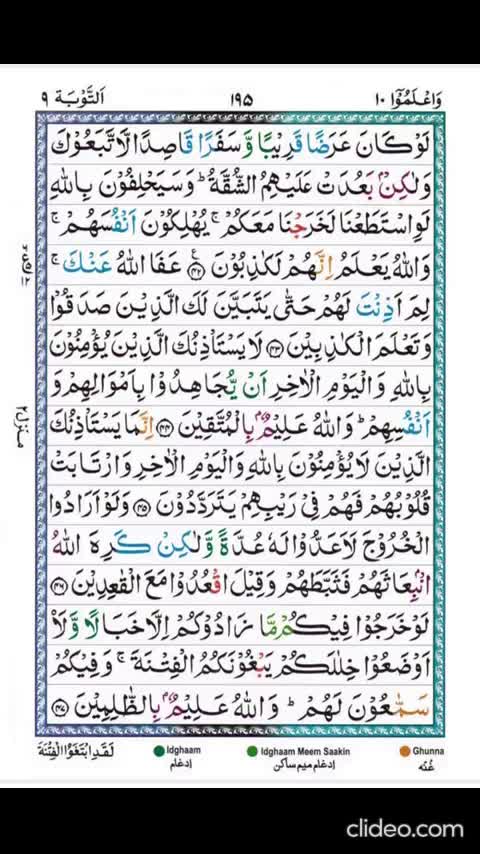 وَاعْلَمُوْٓا ١٠ ١٩٥ اَلتَّوْبَة ٩
لَوْ كَانَ عَرَضًا قَرِيْبًا وَّ سَفَرًا قَاصِدًا لَّاتَّبَعُوْكَ
وَلٰكِنْۢ بَعُدَتْ عَلَيْهِمُ الشُّقَّةُ ؕ وَسَيَحْلِفُوْنَ بِاللّٰهِ
لَوِ اسْتَطَعْنَا لَخَرَجْنَا مَعَكُمْ ۚ يُهْلِكُوْنَ اَنْفُسَهُمْ ۚ
وَاللّٰهُ يَعْلَمُ اِنَّهُمْ لَكٰذِبُوْنَ ﴿٤٢﴾ عَفَا اللّٰهُ عَنْكَ ۚ
لِمَ اَذِنْتَ لَهُمْ حَتّٰى يَتَبَيَّنَ لَكَ الَّذِيْنَ صَدَقُوْا
وَتَعْلَمَ الْكٰذِبِيْنَ ﴿٤٣﴾ لَا يَسْتَاْذِنُكَ الَّذِيْنَ يُؤْمِنُوْنَ
بِاللّٰهِ وَالْيَوْمِ الْاٰخِرِ اَنْ يُّجَاهِدُوْا بِاَمْوَالِهِمْ وَ
اَنْفُسِهِمْ ؕ وَاللّٰهُ عَلِيْمٌۢ بِالْمُتَّقِيْنَ ﴿٤٤﴾ اِنَّمَا يَسْتَاْذِنُكَ
الَّذِيْنَ لَا يُؤْمِنُوْنَ بِاللّٰهِ وَالْيَوْمِ الْاٰخِرِ وَارْتَابَتْ
قُلُوْبُهُمْ فَهُمْ فِيْ رَيْبِهِمْ يَتَرَدَّدُوْنَ ﴿٤٥﴾ وَلَوْ اَرَادُوا
الْخُرُوْجَ لَاَعَدُّوْا لَهٗ عُدَّةً وَّلٰكِنْ كَرِهَ اللّٰهُ
انْۢبِعَاثَهُمْ فَثَبَّطَهُمْ وَقِيْلَ اقْعُدُوْا مَعَ الْقٰعِدِيْنَ ﴿٤٦﴾
لَوْ خَرَجُوْا فِيْكُمْ مَّا زَادُوْكُمْ اِلَّا خَبَالًا وَّلَا۟
اَوْضَعُوْا خِلٰلَكُمْ يَبْغُوْنَكُمُ الْفِتْنَةَ ۚ وَفِيْكُمْ
سَمّٰعُوْنَ لَهُمْ ؕ وَاللّٰهُ عَلِيْمٌۢ بِالظّٰلِمِيْنَ ﴿٤٧﴾
منزل ٢
لَقَدِ ابْتَغَوُا الْفِتْنَةَ
Idghaam Idghaam Meem Saakin Ghunna
ادغام ادغام میم ساکن غنہ
clideo.com